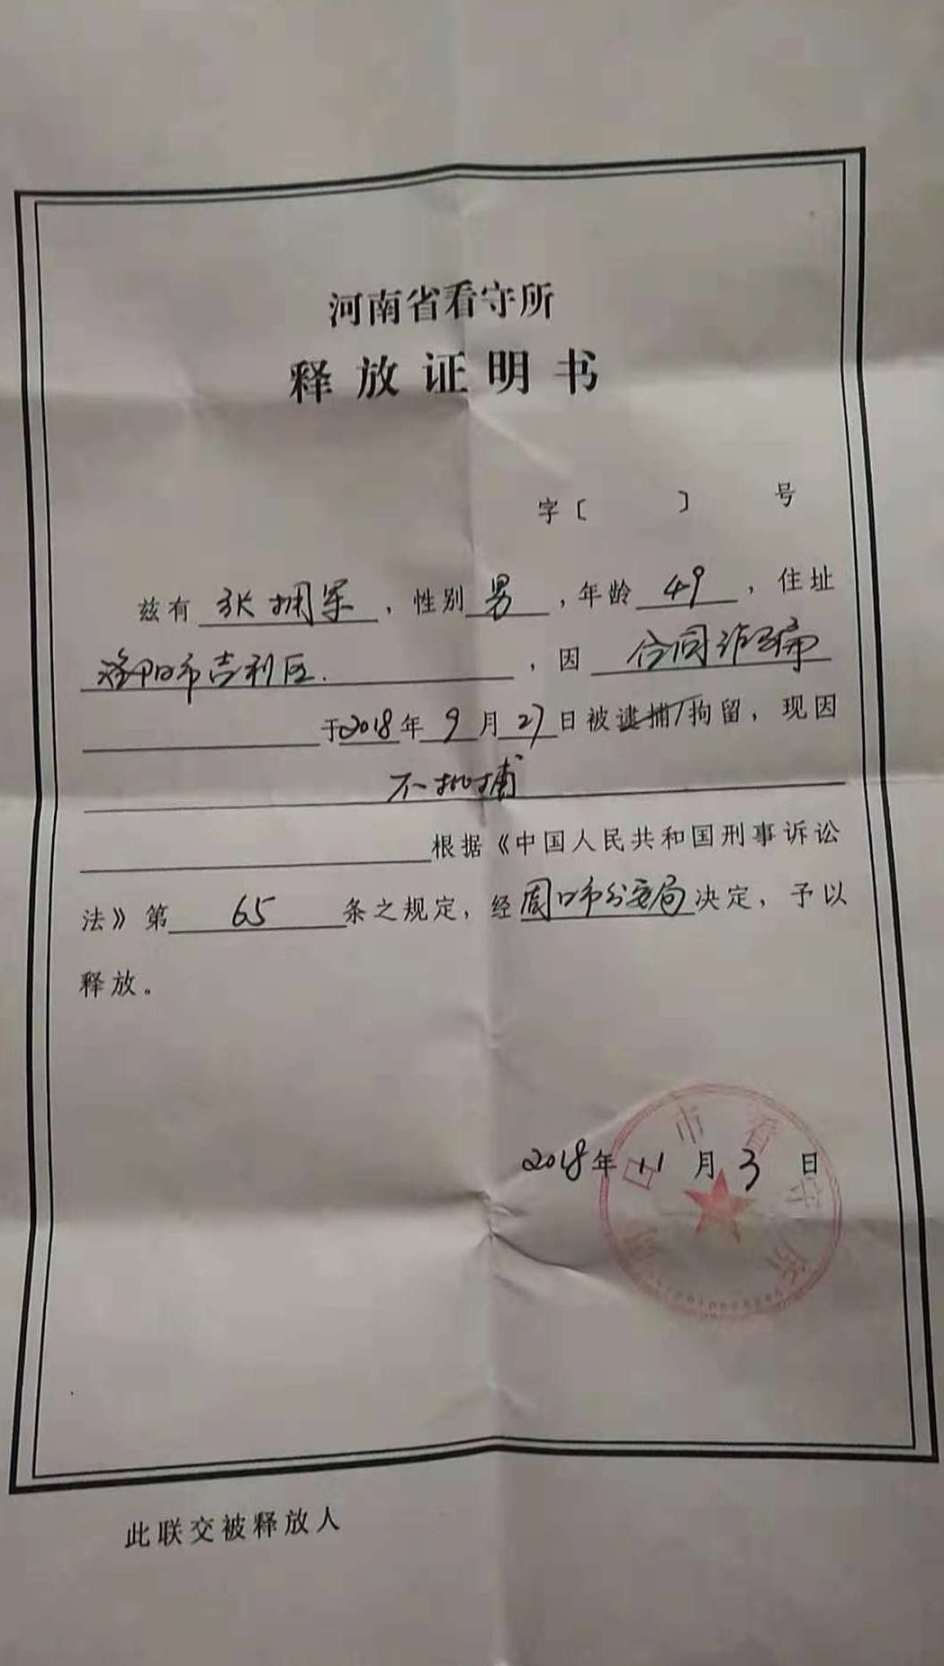 河南省看守所
释放证明书
字〔 〕号
兹有 张拥军 ，性别 男 ，年龄 49 ，住址
洛阳市吉利区. ，因 合同诈骗
于2018年9月27日被逮捕/拘留，现因
不批捕
根据《中国人民共和国刑事诉讼
法》第 65 条之规定，经周口市公安局决定，予以
释放。
2018年11月3日
周口市看守所
此联交被释放人